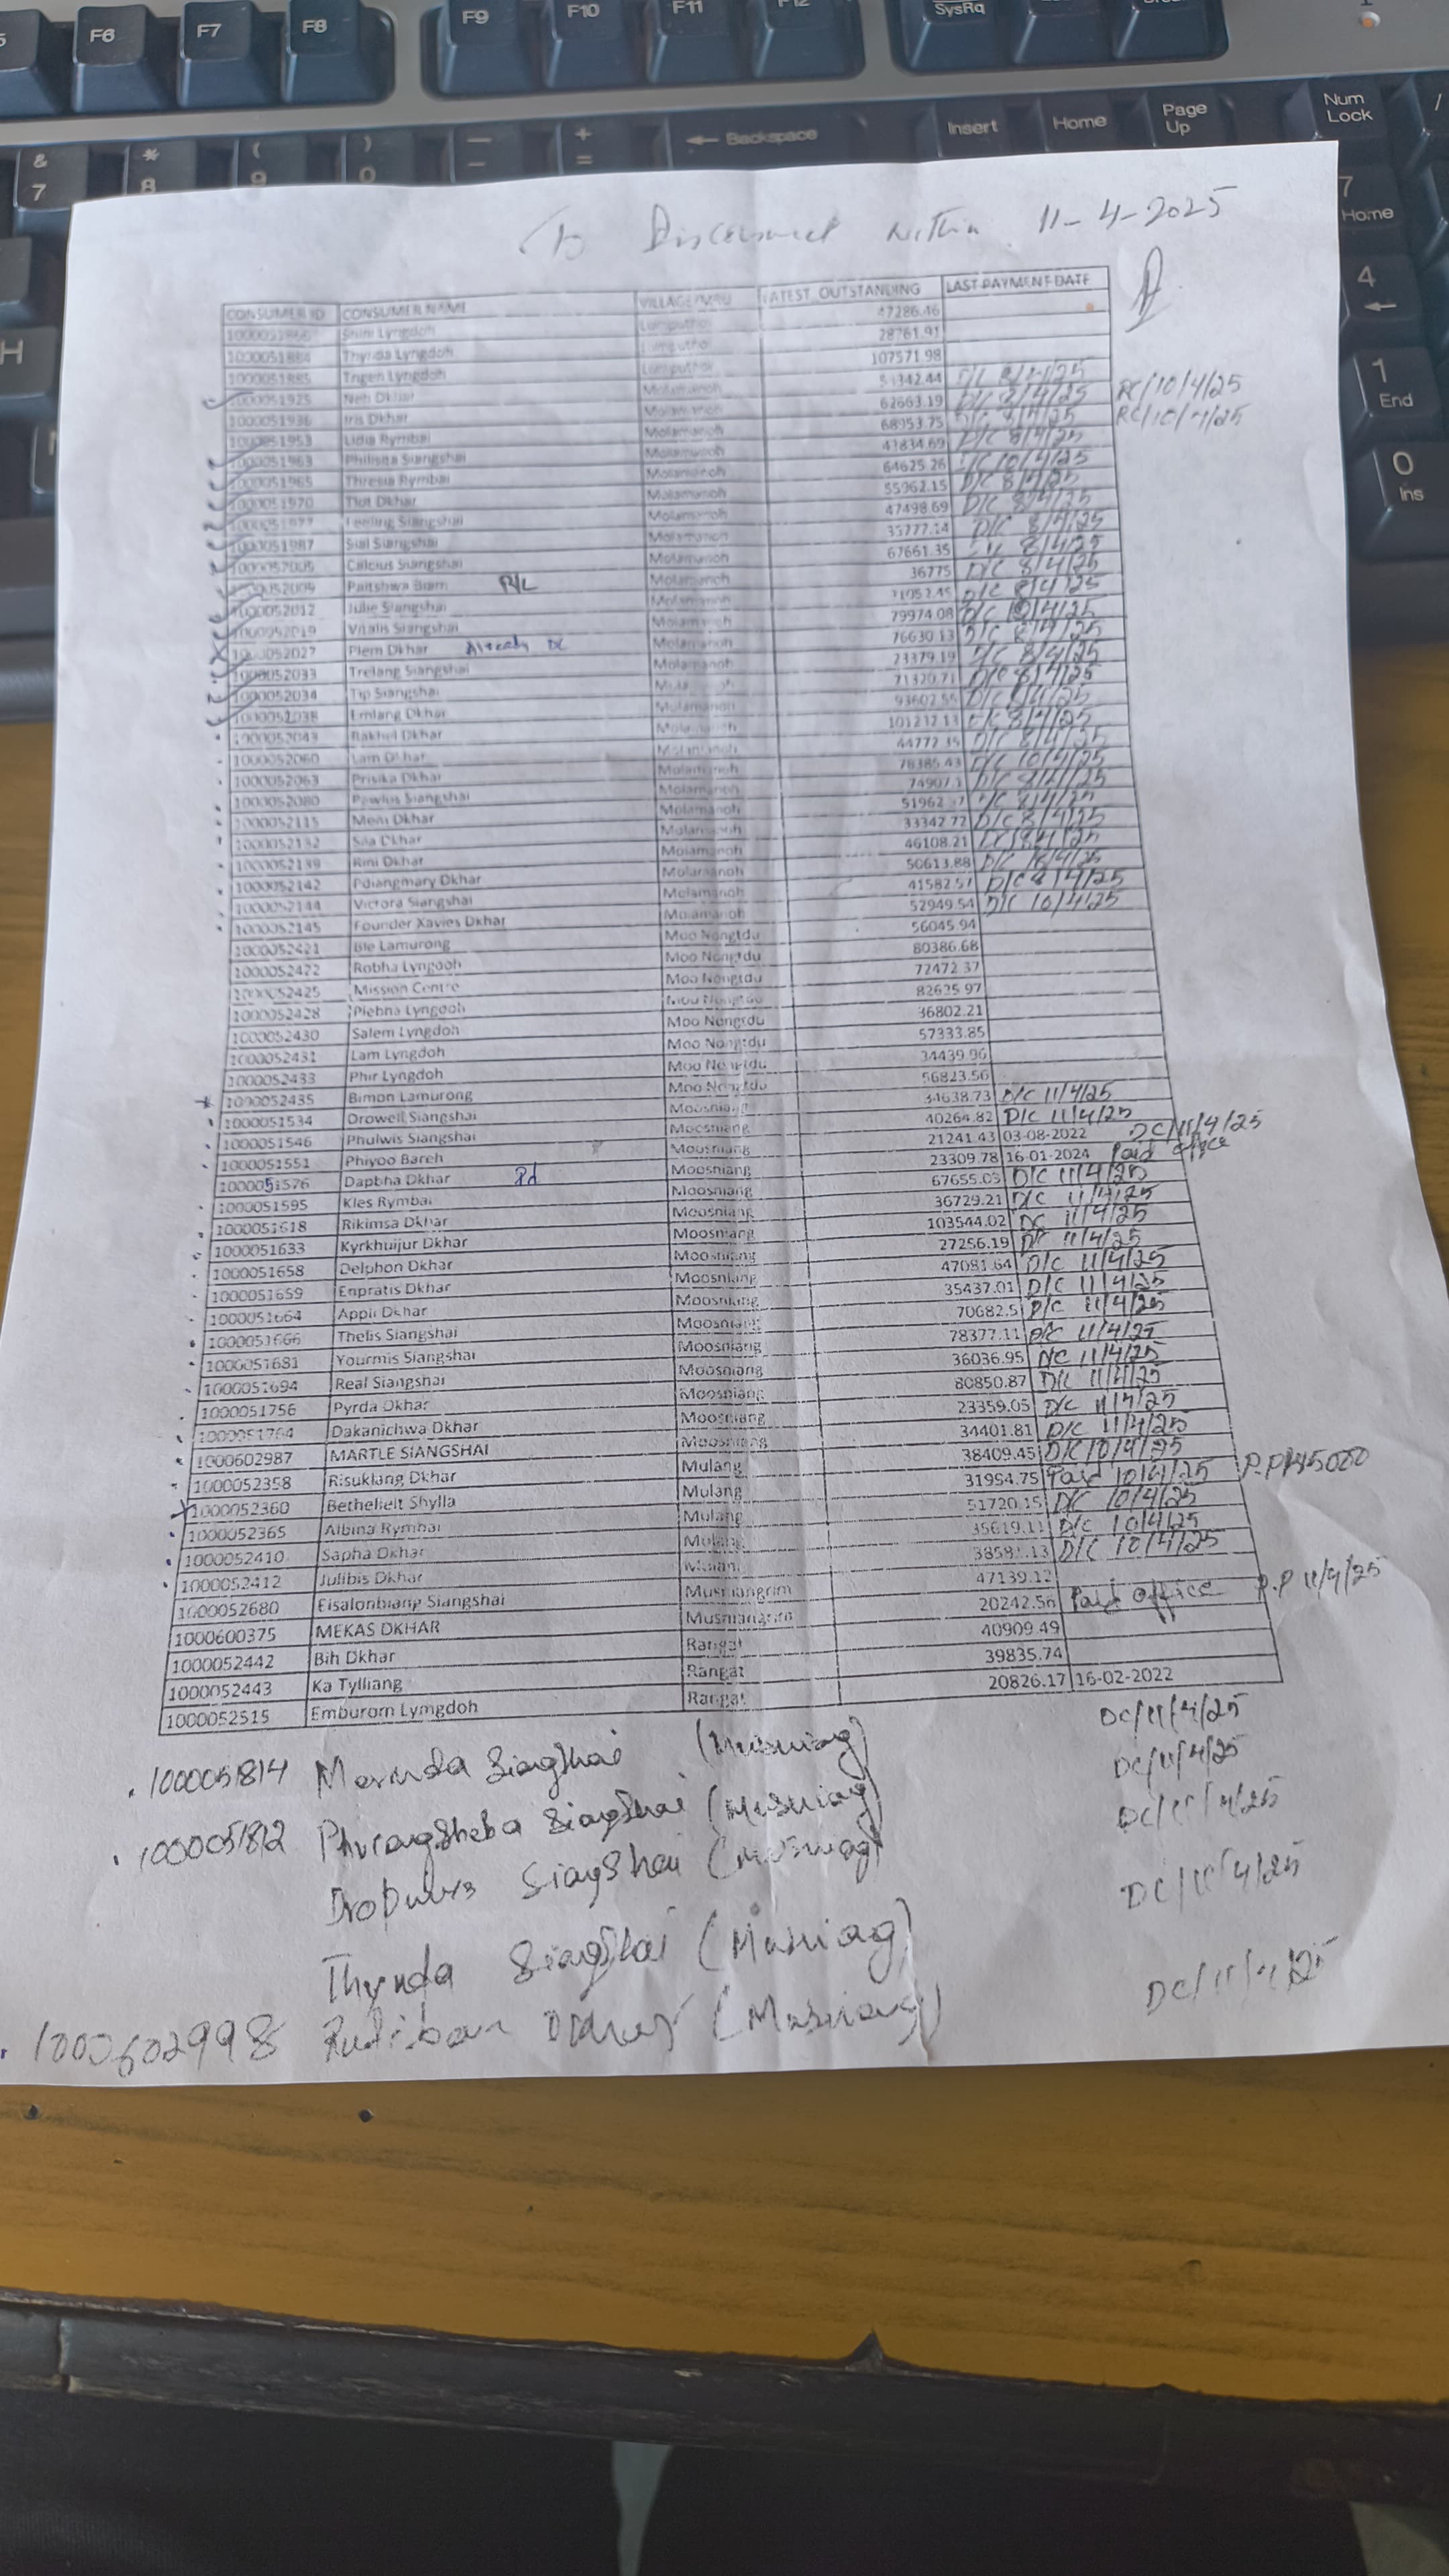 F6 F7 F8 F9 F10 F11 F12 SysRq
& 7 * 8 ( 9 ) 0 — + = ← Backspace Insert Home Page Up Num Lock /
7 Home
4 ←
1 End
0 Ins
H
To Disconnect within 11-4-2025
CONSUMER ID CONSUMER NAME LATEST_OUTSTANDING LAST PAYMENT DATE
Shini Lyngdoh 47286.46
Thynda Lyngdoh 28761.91
1000051885 Trigen Lyngdoh 107571.98
1000051925 Neh Dkhar Molamanoh 8/4/25 RC/10/4/25
1000051936 Iris Dkhar Molamanoh 62663.19 RC/10/4/25
1000051953 Lidia Rymbai Molamanoh 68953.75
1000051963 Philisita Siangshai Molamanoh D/C 8/4/25
1000051965 Thresia Rymbai Molamanoh 64625.26 10/4/25
1000051970 Tlot Dkhar Molamanoh 55962.15 D/C 8/4/25
Siangshai Molamanoh 47498.69 D/C 8/4/25
1000051987 Sial Siangshai Molamanoh D/C 8/4/25
Calcius Siangshai Molamanoh 67661.35 8/4/25
Paitshwa Biam P/L Molamanoh 36775 D/C 8/4/25
1000052012 Julie Siangshai Molamanoh D/C 8/4/25
1000052019 Vitalis Siangshai Molamanoh 79974.08 10/4/25
1000052027 Plem Dkhar Already DC Molamanoh 76630.13
1000052033 Trelang Siangshai Molamanoh 23379.19 D/C 8/4/25
1000052034 Tip Siangshai 71320.71 D/C 8/4/25
1000052038 Emlang Dkhar Molamanoh 93602.55
1000052043 Rakhel Dkhar Molamanoh 101212.13 8/4/25
1000052060 Lam Dkhar Molamanoh
1000052063 Prisika Dkhar Molamanoh 78385.43 10/4/25
1000052080 Pawlus Siangshai Molamanoh
1000052115 Meni Dkhar Molamanoh 51962
1000052132 Sila Dkhar Molamanoh 33342.72 D/C 8/4/25
1000052139 Rini Dkhar Molamanoh 46108.21
1000052142 Pdiangmary Dkhar Molamanoh 50613.88 D/C
1000052144 Victora Siangshai Molamanoh D/C 8/4/25
1000052145 Founder Xavies Dkhar Molamanoh 52949.54 D/C 10/4/25
1000052421 Ble Lamurong Moo Nongtdu 56045.94
1000052422 Robha Lyngdoh Moo Nongtdu 80386.68
1000052425 Mission Centre Moo Nongtdu 72472.37
1000052428 Plebna Lyngdoh Moo Nongtdu
1000052430 Salem Lyngdoh Moo Nongtdu 36802.21
1000052431 Lam Lyngdoh Moo Nongtdu 57333.85
1000052433 Phir Lyngdoh Moo Nongtdu
1000052435 Bimon Lamurong Moo Nongtdu 56823.56
1000051534 Drowell Siangshai Moosniang 34638.73 D/C 11/4/25
1000051546 Phulwis Siangshai Moosniang 40264.82 D/C 11/4/25
1000051551 Phiyoo Bareh Moosniang 21241.43 03-08-2022 DC/11/4/25
1000051576 Dapbha Dkhar Pd Moosniang 23309.78 16-01-2024 Paid office
1000051595 Kles Rymbai Moosniang 67655.03 D/C 11/4/25
1000051618 Rikimsa Dkhar Moosniang 36729.21 D/C 11/4/25
1000051633 Kyrkhuijur Dkhar Moosniang 103544.02 DC 11/4/25
1000051658 Delphon Dkhar Moosniang 27256.19 DC 11/4/25
1000051659 Enpratis Dkhar Moosniang 47081.64 D/C 11/4/25
1000051664 Appli Dkhar Moosniang 35437.01 D/C 11/4/25
1000051666 Thelis Siangshai Moosniang 70682.5 D/C 11/4/25
1000051681 Yourmis Siangshai Moosniang 78377.11 D/C 11/4/25
1000051694 Real Siangshai Moosniang 36036.95 D/C 11/4/25
1000051756 Pyrda Dkhar Moosniang 80850.87 D/C 11/4/25
1000051764 Dakanichwa Dkhar Moosniang 23359.05 D/C 11/4/25
1000602987 MARTLE SIANGSHAI Moosniang 34401.81 D/C 11/4/25
1000052358 Risuklang Dkhar Mulang 38409.45 D/C 10/4/25
1000052360 Bethelielt Shylla Mulang 31994.75 Paid 10/4/25
1000052365 Albina Rymbai Mulang 51720.15 D/C 10/4/25
1000052410 Sapha Dkhar Mulang 35619.11 D/C 10/4/25
1000052412 Julibis Dkhar D/C 10/4/25
1000052680 Eisalonbiang Siangshai Musniangrim 47139.12
1000600375 MEKAS DKHAR Musniangrim 20242.56 Paid office P.P 11/4/25
1000052442 Bih Dkhar Rangat 40909.49
1000052443 Ka Tylliang Rangat 39835.74
1000052515 Emburom Lymgdoh Rangat 20826.17 16-02-2022
1000051814 Siangshai DC/11/4/25
1000051812 Siangshai (Musniang) DC/11/4/25
Siangshai (Musniang) DC/11/4/25
Thynda Siangshai (Musniang) DC/11/4/25
1000602998 (Musniang) DC/11/4/25